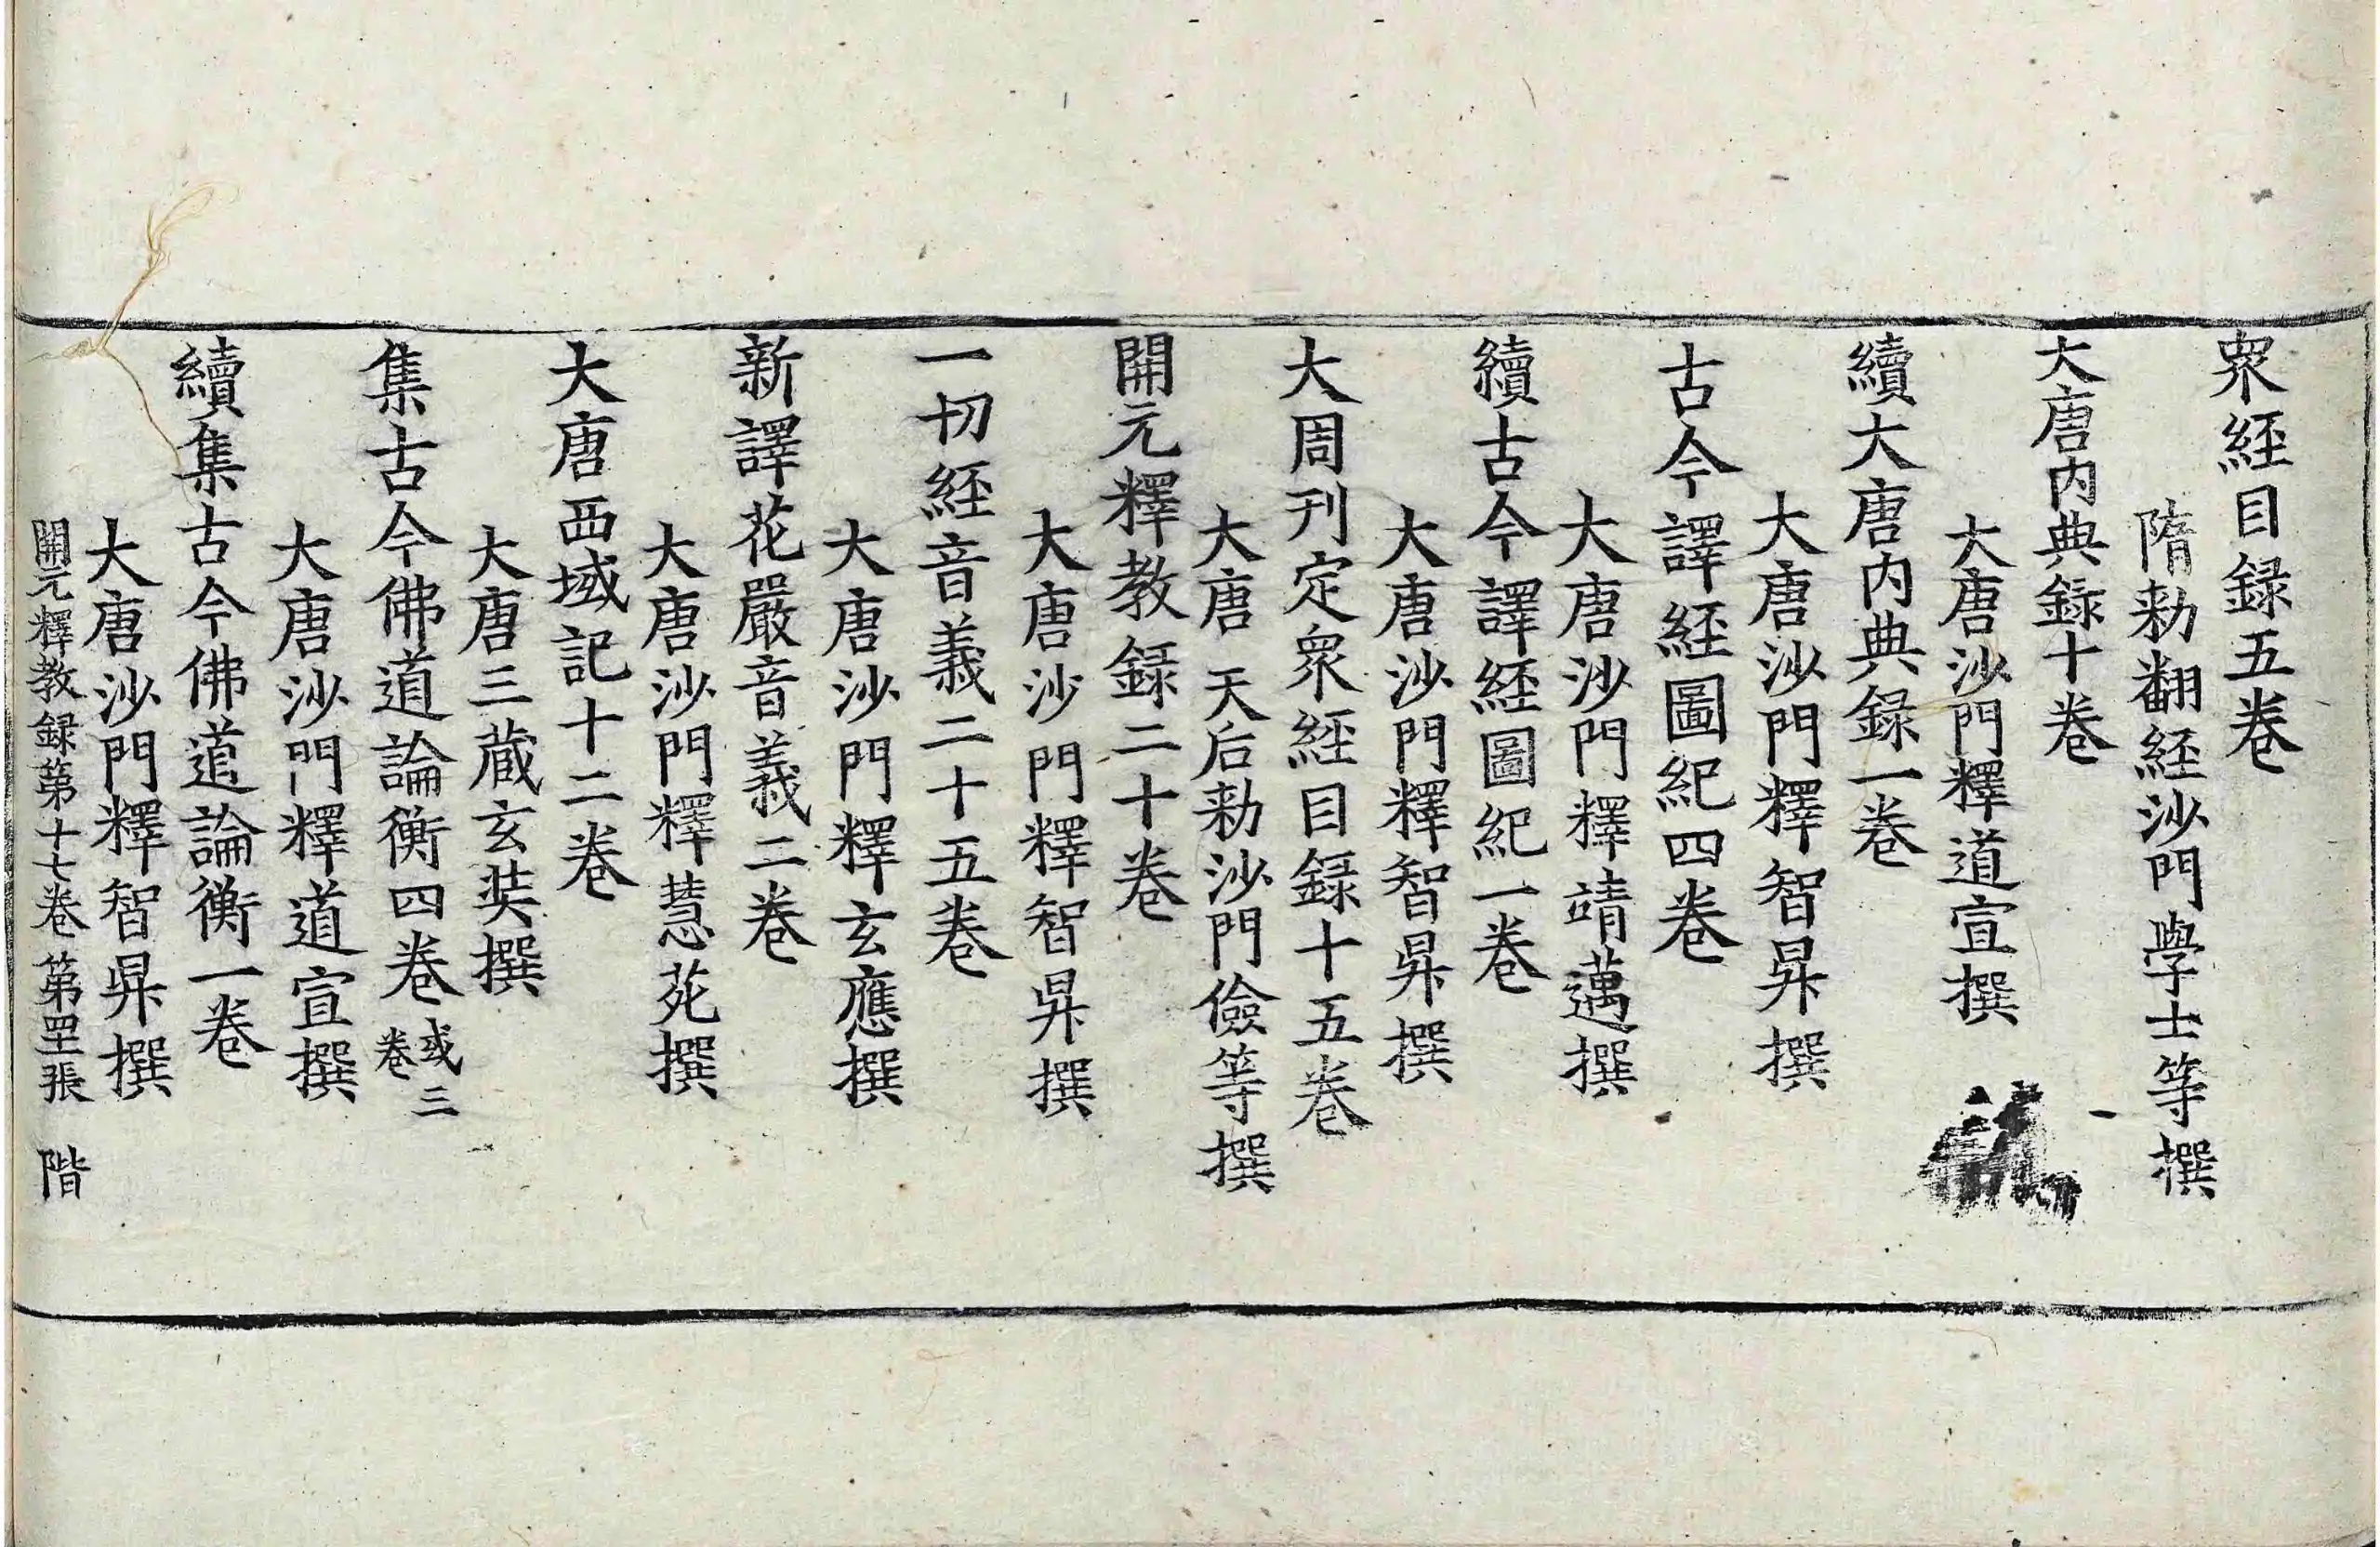 衆經目録五卷
隋勑翻經沙門學士等撰
大唐内典録十卷
大唐沙門釋道宣撰
續大唐内典録一卷
大唐沙門釋智昇撰
古今譯經圖紀四卷
大唐沙門釋靖邁撰
續古今譯經圖紀一卷
大唐沙門釋智昇撰
大周刊定衆經目録十五卷
大唐天后勑沙門儉等撰
開元釋教録二十卷
大唐沙門釋智昇撰
一切經音義二十五卷
大唐沙門釋玄應撰
新譯花嚴音義二卷
大唐沙門釋慧苑撰
大唐西域記十二卷
大唐三蔵玄奘撰
集古今佛道論衡四卷或三卷
大唐沙門釋道宣撰
續集古今佛道論衡一卷
大唐沙門釋智昇撰
開元釋教録第十七卷 第罡張 階